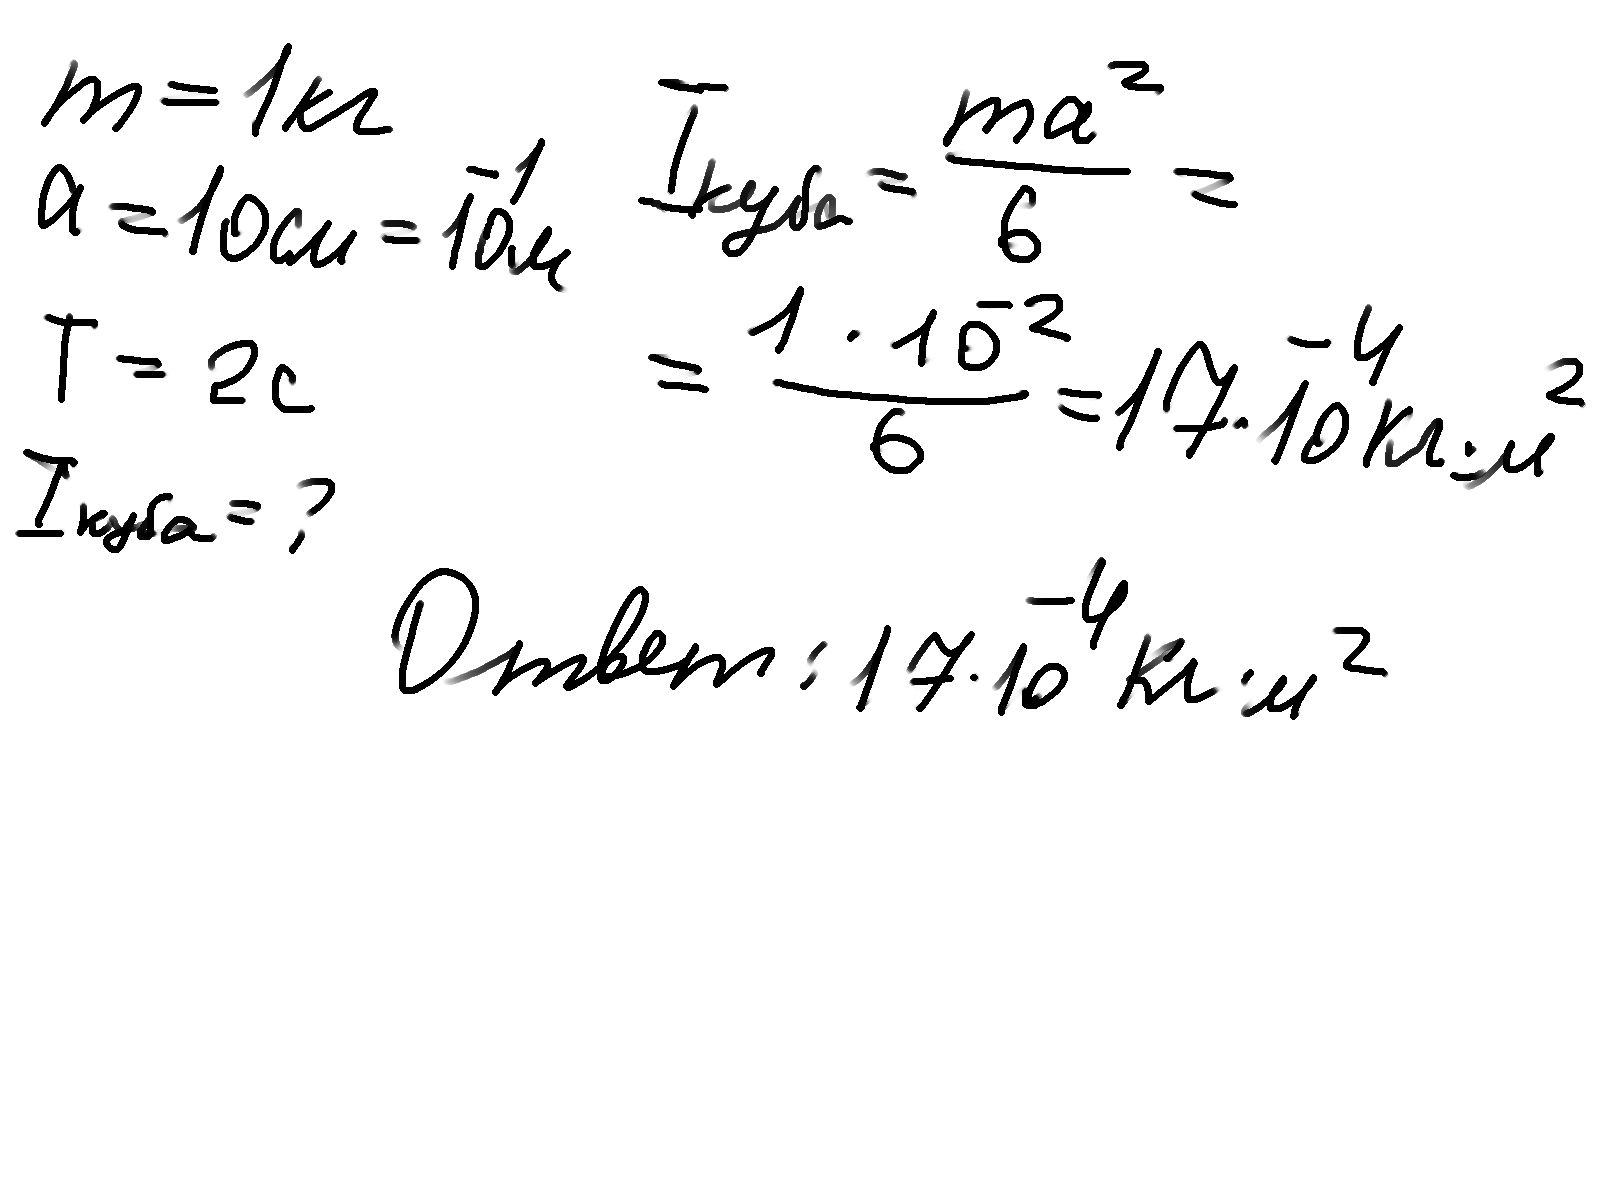 m = 1кг
a = 10см = 10⁻¹м
T = 2с
Iкуба = ?
Iкуба = ma²/6 =
= 1 · 10⁻²/6 = 17 · 10⁻⁴ кг · м²
Ответ: 17 · 10⁻⁴ кг · м²